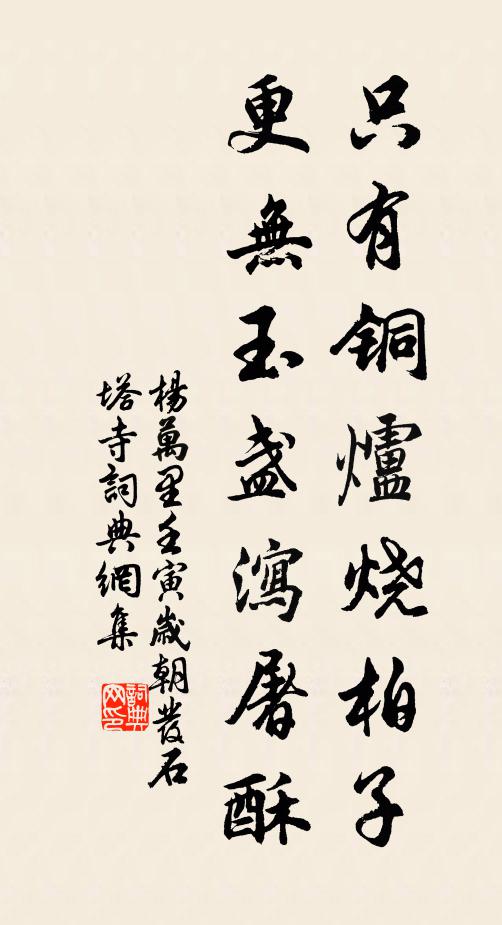 只有铜爐烧柏子
更無玉盏瀉屠酥
楊萬里壬寅歲朝發石
塔寺詞典網集
詞典
网印